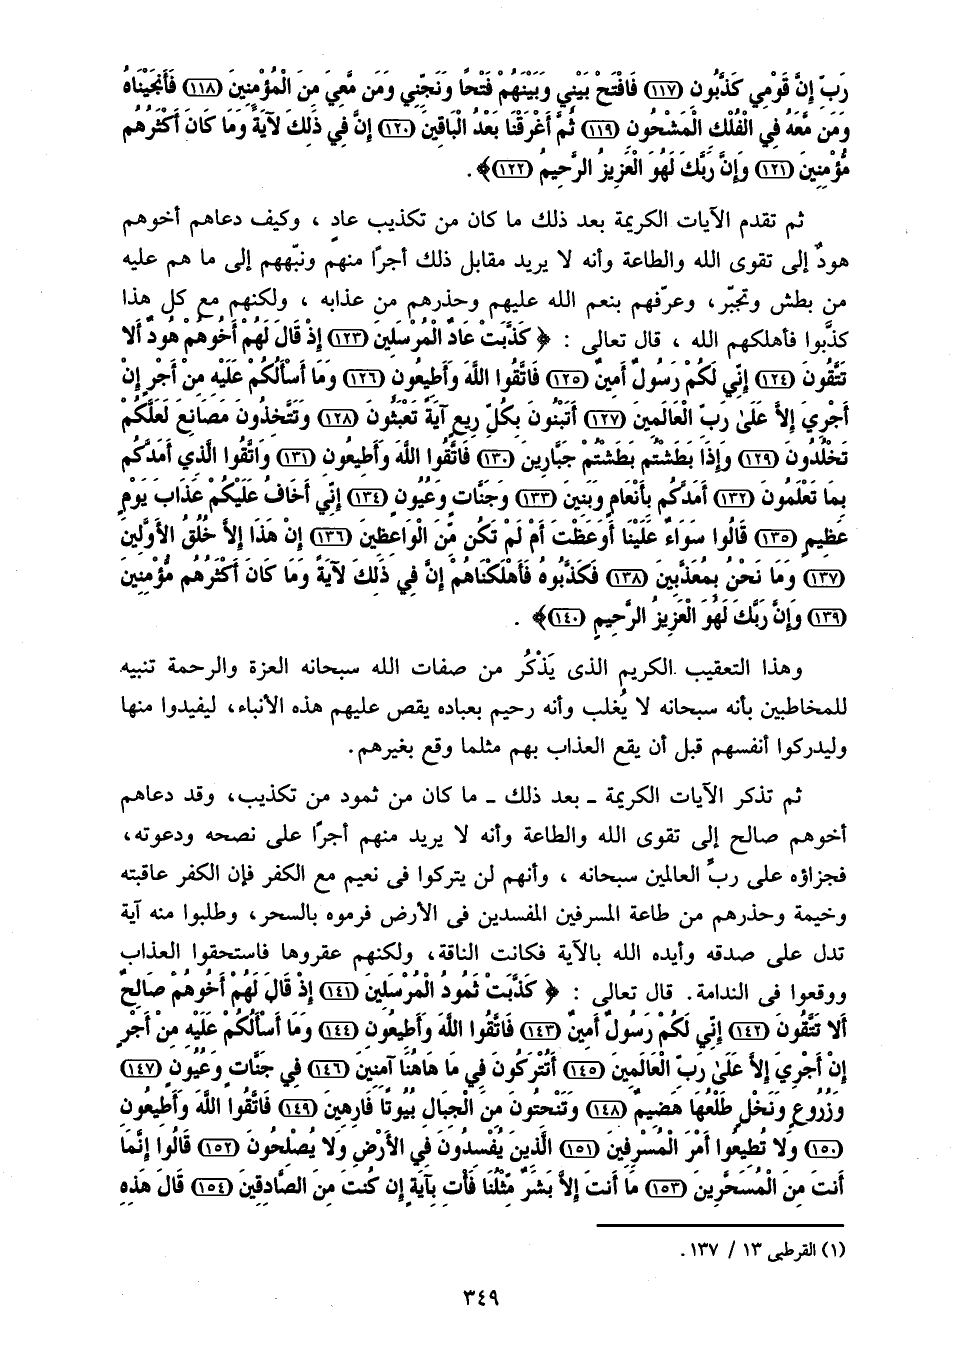 رَبِّ إِنَّ قَوْمِي كَذَّبُونِ (١١٧) فَافْتَحْ بَيْنِي وَبَيْنَهُمْ فَتْحًا وَنَجِّنِي وَمَن مَّعِيَ مِنَ الْمُؤْمِنِينَ (١١٨) فَأَنجَيْنَاهُ
وَمَن مَّعَهُ فِي الْفُلْكِ الْمَشْحُونِ (١١٩) ثُمَّ أَغْرَقْنَا بَعْدُ الْبَاقِينَ (١٢٠) إِنَّ فِي ذَلِكَ لآيَةً وَمَا كَانَ أَكْثَرُهُم
مُّؤْمِنِينَ (١٢١) وَإِنَّ رَبَّكَ لَهُوَ الْعَزِيزُ الرَّحِيمُ (١٢٢)﴾ .
ثم تقدم الآيات الكريمة بعد ذلك ما كان من تكذيب عادٍ ، وكيف دعاهم أخوهم
هودٌ إلى تقوى الله والطاعة وأنه لا يريد مقابل ذلك أجرًا منهم ونبّههم إلى ما هم عليه
من بطش وتجبّر، وعرّفهم بنعم الله عليهم وحذرهم من عذابه ، ولكنهم مع كل هذا
كذَّبوا فأهلكهم الله ، قال تعالى : ﴿ كَذَّبَتْ عَادٌ الْمُرْسَلِينَ (١٢٣) إِذْ قَالَ لَهُمْ أَخُوهُمْ هُودٌ أَلا
تَتَّقُونَ (١٢٤) إِنِّي لَكُمْ رَسُولٌ أَمِينٌ (١٢٥) فَاتَّقُوا اللَّهَ وَأَطِيعُونِ (١٢٦) وَمَا أَسْأَلُكُمْ عَلَيْهِ مِنْ أَجْرٍ إِنْ
أَجْرِيَ إِلاَّ عَلَىٰ رَبِّ الْعَالَمِينَ (١٢٧) أَتَبْنُونَ بِكُلِّ رِيعٍ آيَةً تَعْبَثُونَ (١٢٨) وَتَتَّخِذُونَ مَصَانِعَ لَعَلَّكُمْ
تَخْلُدُونَ (١٢٩) وَإِذَا بَطَشْتُم بَطَشْتُمْ جَبَّارِينَ (١٣٠) فَاتَّقُوا اللَّهَ وَأَطِيعُونِ (١٣١) وَاتَّقُوا الَّذِي أَمَدَّكُم
بِمَا تَعْلَمُونَ (١٣٢) أَمَدَّكُم بِأَنْعَامٍ وَبَنِينَ (١٣٣) وَجَنَّاتٍ وَعُيُونٍ (١٣٤) إِنِّي أَخَافُ عَلَيْكُمْ عَذَابَ يَوْمٍ
عَظِيمٍ (١٣٥) قَالُوا سَوَاءٌ عَلَيْنَا أَوَعَظْتَ أَمْ لَمْ تَكُن مِّنَ الْوَاعِظِينَ (١٣٦) إِنْ هَذَا إِلاَّ خُلُقُ الأَوَّلِينَ
(١٣٧) وَمَا نَحْنُ بِمُعَذَّبِينَ (١٣٨) فَكَذَّبُوهُ فَأَهْلَكْنَاهُمْ إِنَّ فِي ذَلِكَ لآيَةً وَمَا كَانَ أَكْثَرُهُم مُّؤْمِنِينَ
(١٣٩) وَإِنَّ رَبَّكَ لَهُوَ الْعَزِيزُ الرَّحِيمُ (١٤٠)﴾ .
وهذا التعقيب الكريم الذى يَذْكُر من صفات الله سبحانه العزة والرحمة تنبيه
للمخاطبين بأنه سبحانه لا يُغلب وأنه رحيم بعباده يقص عليهم هذه الأنباء، ليفيدوا منها
وليدركوا أنفسهم قبل أن يقع العذاب بهم مثلما وقع بغيرهم.
ثم تذكر الآيات الكريمة ـ بعد ذلك ـ ما كان من ثمود من تكذيب، وقد دعاهم
أخوهم صالح إلى تقوى الله والطاعة وأنه لا يريد منهم أجرًا على نصحه ودعوته،
فجزاؤه على ربِّ العالمين سبحانه ، وأنهم لن يتركوا فى نعيم مع الكفر فإن الكفر عاقبته
وخيمة وحذرهم من طاعة المسرفين المفسدين فى الأرض فرموه بالسحر، وطلبوا منه آية
تدل على صدقه وأيده الله بالآية فكانت الناقة، ولكنهم عقروها فاستحقوا العذاب
ووقعوا فى الندامة. قال تعالى : ﴿ كَذَّبَتْ ثَمُودُ الْمُرْسَلِينَ (١٤١) إِذْ قَالَ لَهُمْ أَخُوهُمْ صَالِحٌ
أَلا تَتَّقُونَ (١٤٢) إِنِّي لَكُمْ رَسُولٌ أَمِينٌ (١٤٣) فَاتَّقُوا اللَّهَ وَأَطِيعُونِ (١٤٤) وَمَا أَسْأَلُكُمْ عَلَيْهِ مِنْ أَجْرٍ
إِنْ أَجْرِيَ إِلاَّ عَلَىٰ رَبِّ الْعَالَمِينَ (١٤٥) أَتُتْرَكُونَ فِي مَا هَاهُنَا آمِنِينَ (١٤٦) فِي جَنَّاتٍ وَعُيُونٍ (١٤٧)
وَزُرُوعٍ وَنَخْلٍ طَلْعُهَا هَضِيمٌ (١٤٨) وَتَنْحِتُونَ مِنَ الْجِبَالِ بُيُوتًا فَارِهِينَ (١٤٩) فَاتَّقُوا اللَّهَ وَأَطِيعُونِ
(١٥٠) وَلا تُطِيعُوا أَمْرَ الْمُسْرِفِينَ (١٥١) الَّذِينَ يُفْسِدُونَ فِي الأَرْضِ وَلا يُصْلِحُونَ (١٥٢) قَالُوا إِنَّمَا
أَنتَ مِنَ الْمُسَحَّرِينَ (١٥٣) مَا أَنتَ إِلاَّ بَشَرٌ مِّثْلُنَا فَأْتِ بِآيَةٍ إِن كُنتَ مِنَ الصَّادِقِينَ (١٥٤) قَالَ هَذِهِ
(١) القرطبى ١٣ / ١٣٧ .
٣٤٩